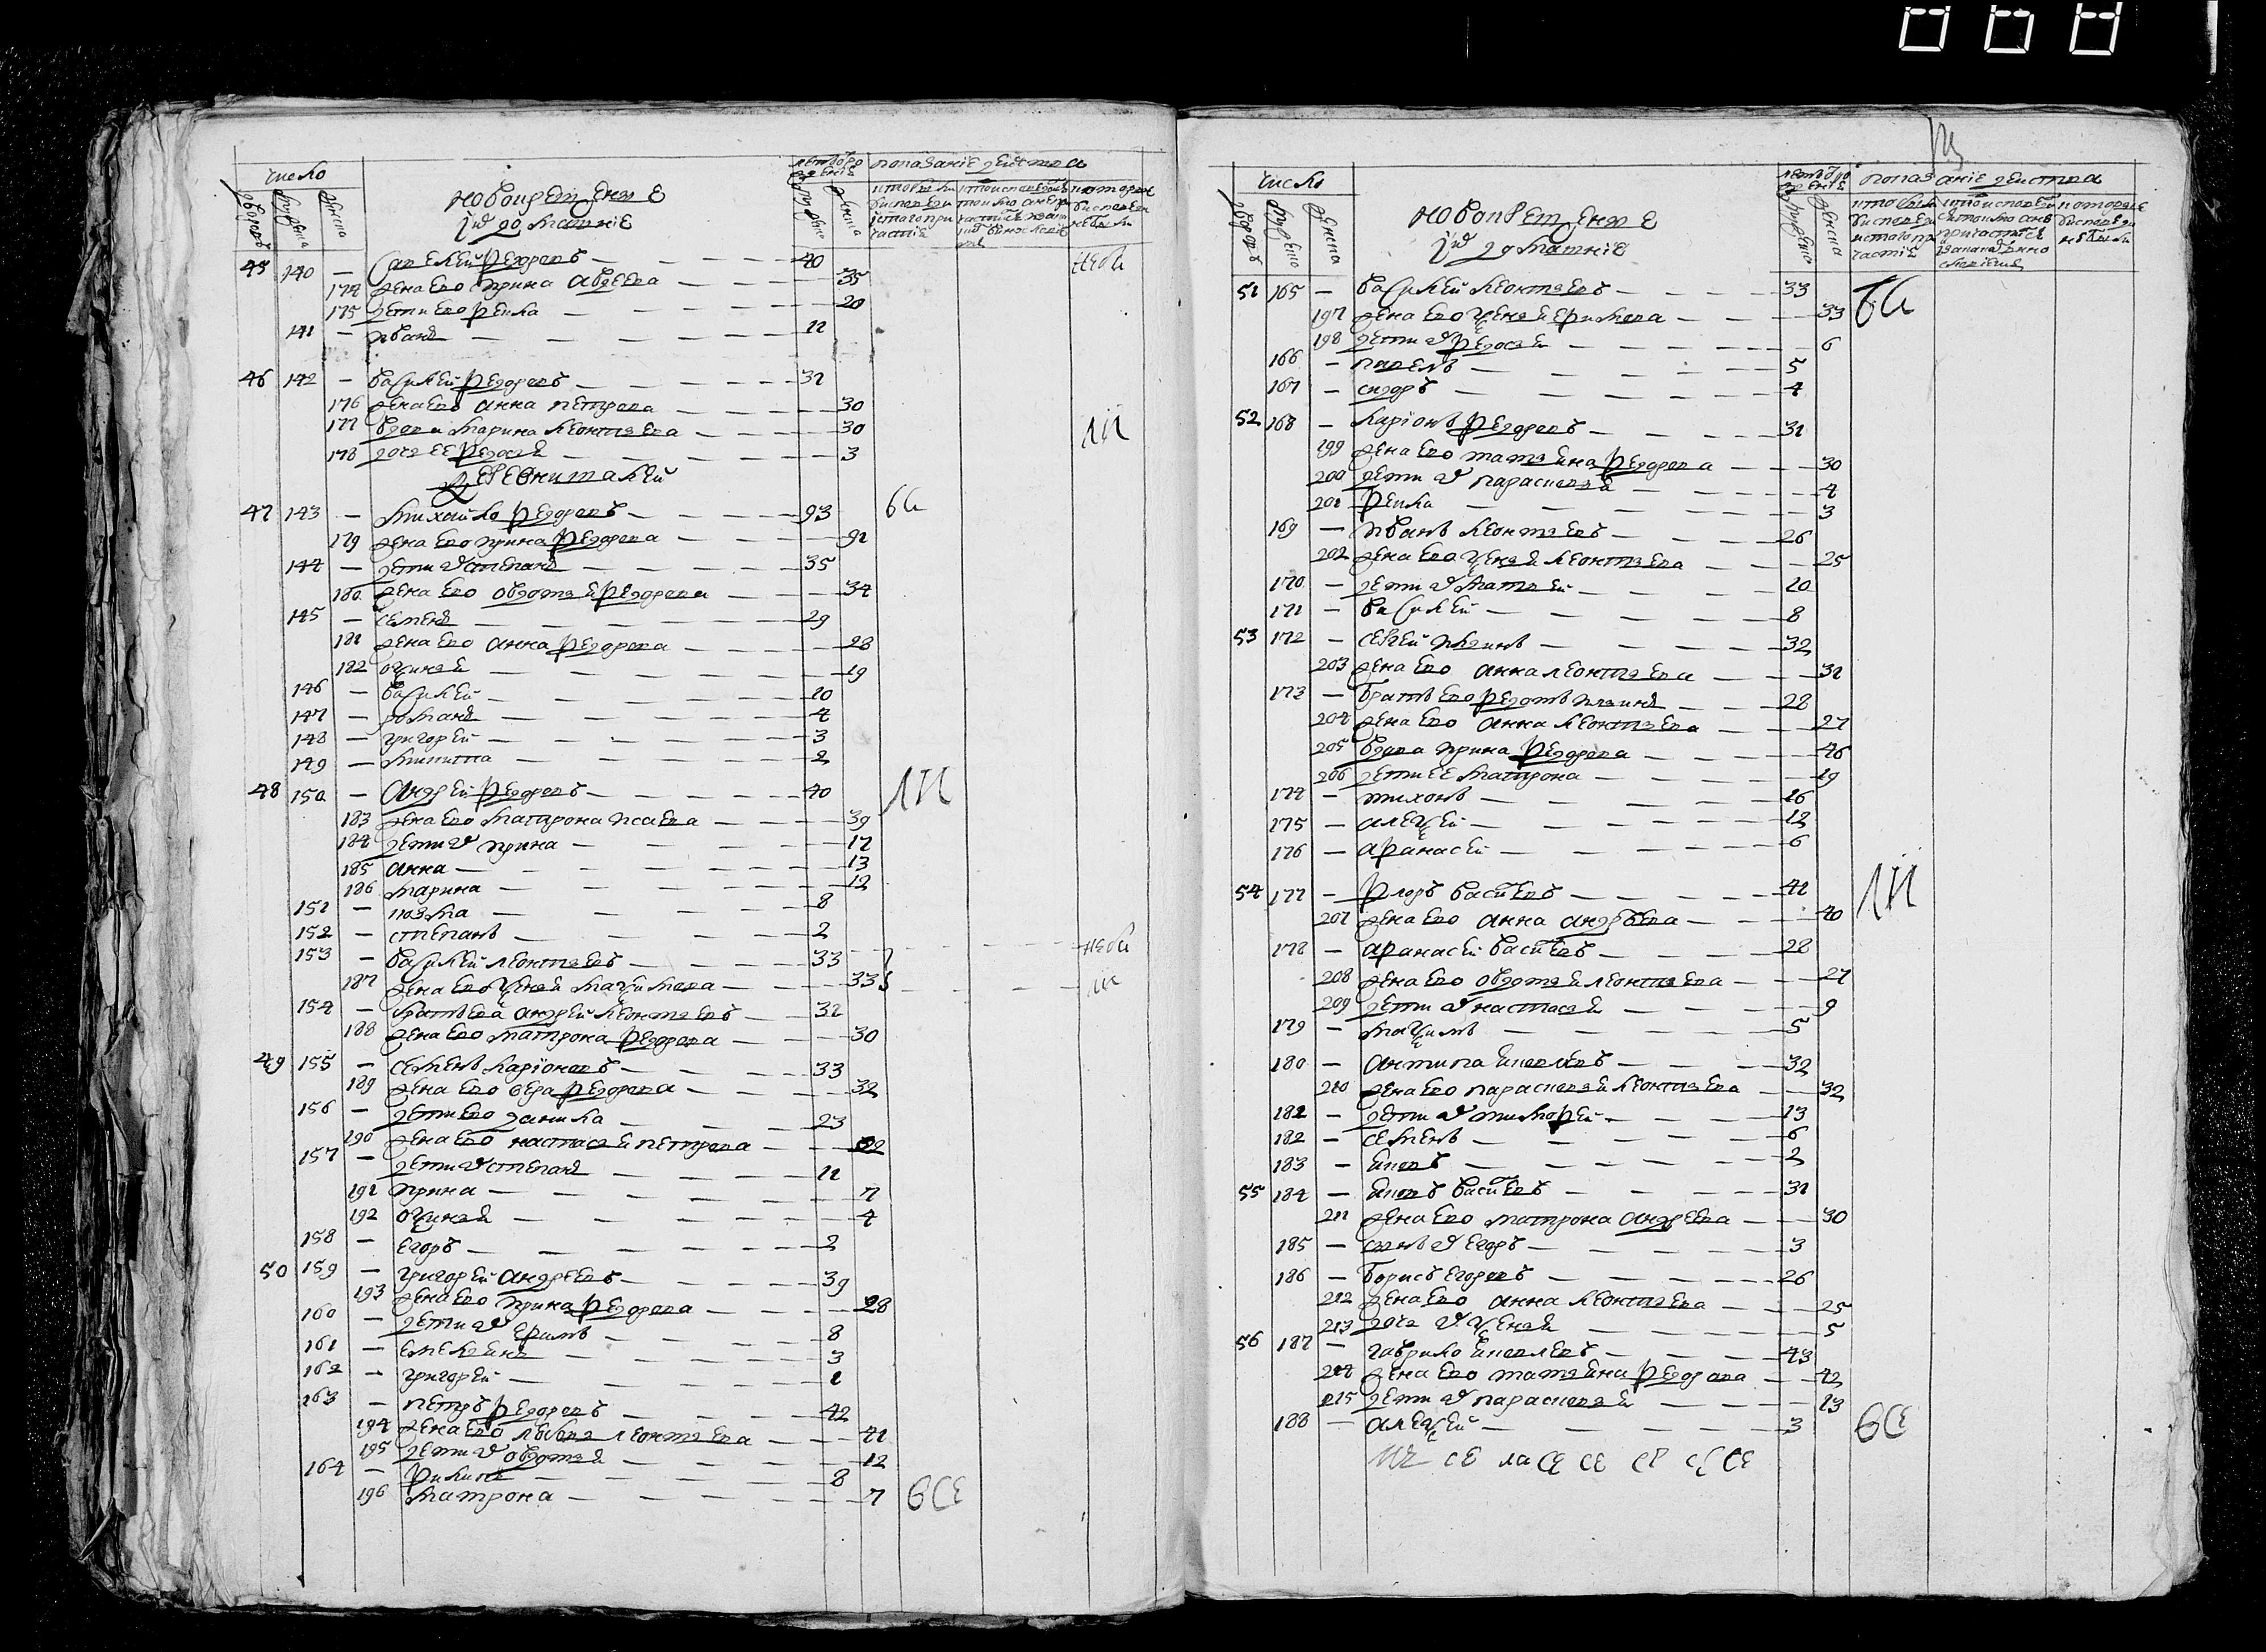 число
дворовъ
мужеска
женска
новокрещеные
и их домашние
лет от рождения
мужеска
женска
показание действа
45 140 — Савелей Федоров — 40
174 жена ево Ирина Авдеева — 35
175 дети ево Фекла — 20
141 — Иван — 11
46 142 — Василей Федоров — 31
176 жена ево Анна Петрова — 30
177 вдова Марина Леонтьева — 30
178 дочь ее Федосья — 3
47 143 — Михайло Федоров — 93
179 жена ево Ирина Федорова — 91
144 — дети их Степан — 35
180 жена ево Овдотья Федорова — 34
145 — Семен — 29
181 жена ево Анна Федорова — 28
182 Оксинья — 19
146 — Василей — 10
147 — Роман — 4
148 — Григорей — 3
149 — Микита — 2
48 150 — Андрей Федоров — 40
183 жена ево Матрона Исаева — 39
184 дети их Ирина — 17
185 Анна — 13
186 Марина — 12
151 — Козма — 8
152 — Степан — 2
153 — Василей Леонтьев — 33
187 жена ево Ксенья Максимова — 33
154 — брат ево Андрей Леонтьев — 31
188 жена ево Матрона Федорова — 30
49 155 — Семен Ларионов — 33
189 жена ево Вера Федорова — 32
156 — дети ево Данила — 23
190 жена ево Настасья Петрова — 22
157 — дети их Степан — 11
191 Ирина — 7
192 Оксинья — 4
158 — Егор — 2
50 159 — Григорей Андреев — 39
193 жена ево Ирина Федорова — 28
160 — дети их Ефим — 8
161 — Емельян — 3
162 — Григорей — 1
163 — Петр Федоров — 42
194 жена ево Любовь Леонтьева — 41
195 дети их Овдотья — 12
164 — Филип — 8
196 Матрона — 7
число
новокрещеные
и их домашние
показание действа
51 165 — Василей Леонтьев — 33
197 жена ево Ксенья Ефимова — 33
198 дети их Федосья — 6
166 — Павел — 5
167 — Сидор — 4
52 168 — Ларион Федоров — 31
199 жена ево Татьяна Федорова — 30
200 дети их Парасковья — 4
201 Фекла — 3
169 — Иван Леонтьев — 26
202 жена ево Ксенья Леонтьева — 25
170 — дети их Матвей — 10
171 — Василей — 8
53 172 — Сергей Ильин — 32
203 жена ево Анна Леонтьева — 31
173 — брат ево Федот Ильин — 28
204 жена ево Анна Леонтьева — 27
205 вдова Ирина Федорова — 46
206 дети ее Матрона — 19
174 — Тихон — 16
175 — Алексей — 12
176 — Афанасей — 6
54 177 — Флор Васильев — 41
207 жена ево Анна Андреева — 40
178 — Афанасей Васильев — 28
208 жена ево Овдотья Леонтьева — 27
209 дети их Настасья — 9
179 — Максим — 5
180 — Антипа Яковлев — 32
210 жена ево Парасковья Леонтьева — 32
181 — дети их Тимофей — 13
182 — Семен — 6
183 — Яков — 2
55 184 — Яков Васильев — 31
211 жена ево Матрона Андреева — 30
185 — сын их Егор — 3
186 — Борис Егоров — 26
212 жена ево Анна Леонтьева — 25
213 дочь их Ксенья — 5
56 187 — Гаврило Яковлев — 43
214 жена ево Татьяна Федорова — 42
215 дети их Парасковья — 13
188 — Алексей — 3